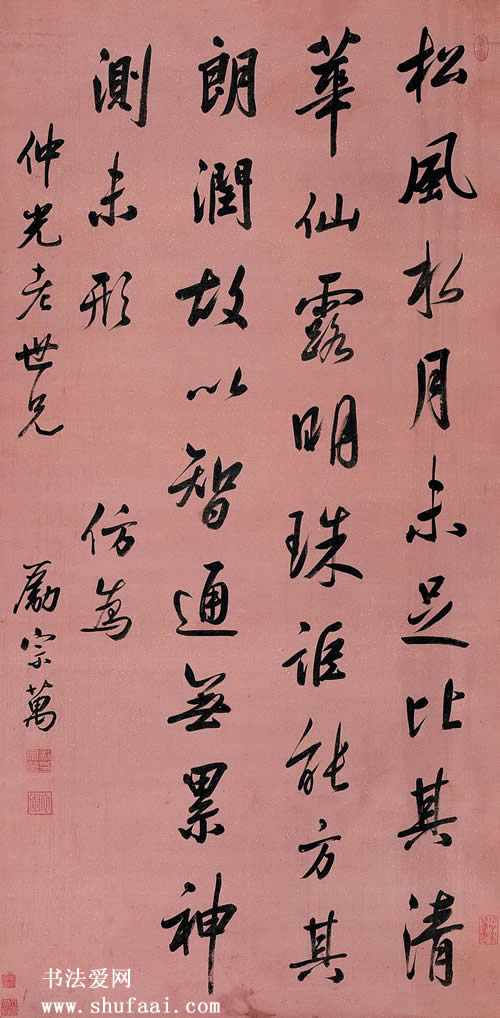 松風水月未足比其清
華仙露明珠詎能方其
朗潤故以智通無累神
測未形 仿為
仲光老世兄 勵宗萬
书法爱网
www.shufaai.com